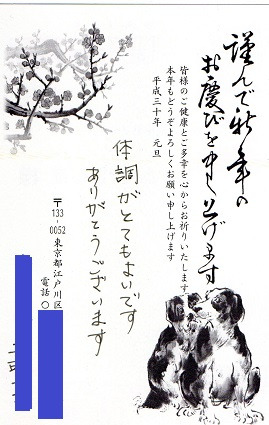 謹んで新年の
お慶びを申し上げます
皆様のご健康とご多幸を心からお祈りいたします
本年もどうぞよろしくお願い申し上げます
平成三十年 元旦
体調がとてもよいです
ありがとうございます
〒133-0052
東京都江戸川区
電話〇